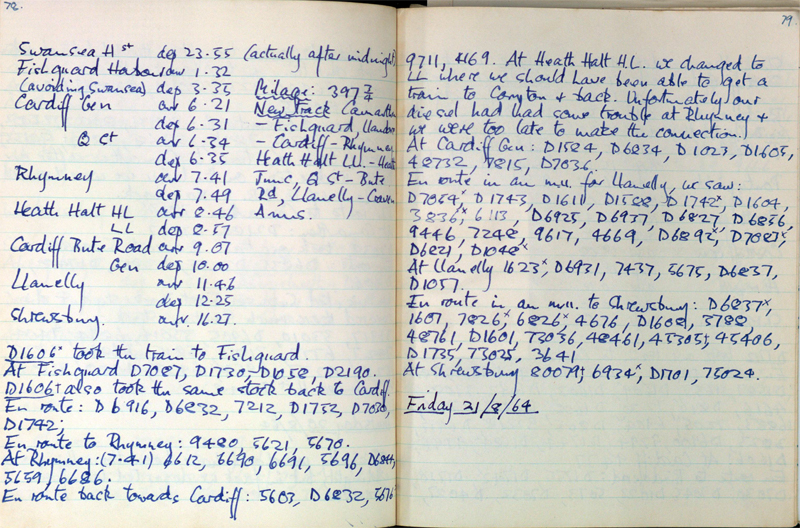 72.
Swansea H St dep 23.55 (actually after midnight)
Fishguard Harbour arr 1.32
(avoiding Swansea) dep 3.35 Milage: 397 3/4
Cardiff Gen arr 6.21 New Track
dep 6.31 – Fishguard,
Q St arr 6.34 – Cardiff – Rhymney
dep 6.35 Heath Halt LL. – Heath
Rhymney arr 7.41 Junc, Q St – Bute
dep 7.49 Rd, Llanelly – Craven
Heath Halt HL arr 8.46 Arms.
LL dep 8.57
Cardiff Bute Road arr 9.07
Gen dep 10.00
Llanelly arr 11.46
dep 12.25
Shrewsbury arr. 16.27.
D1606x took the train to Fishguard.
At Fishguard D7087, D1730, D1058, D2190.
D1606† also took the same stock back to Cardiff.
En route: D6916, D6832, 7212, D1752,
D1742,
En route to Rhymney: 9480, 5621, 5670.
At Rhymney: (7.41) 6612, 6690, 6691, 5696,
5659, 6686.
En route back towards Cardiff: 5603, D6832, 5676
79.
9711, 4169. At Heath Halt H.L. we changed to
LL where we should have been able to get a
train to Coryton & back. Unfortunately our
diesel had had some trouble at Rhymney &
we were too late to make the connection.
At Cardiff Gen: D1584, D6834, D1023, D1605,
48732, 7815, D7036
En route in an m.u. for Llanelly, we saw:
D7054x, D1743, D1611, D1588, D1742x, D1604,
3836x, 6113, D6925, D6937, D6827, D6856,
9446, 7248, 9617, 4669, D6892x,
D6821, D1048x
At Llanelly 1623x, D6931, 7437, 5675, D6837,
D1057.
En route in an m.u. to Shrewsbury: D6837x,
1607, 7826x, 6826x, 4676, D1608, 3788,
48761, D1601, 73036, 48461, 45305†, 45406,
D1735, 73025, 3641
At Shrewsbury 80079†, 6934x, D1701, 75024.
Friday 21/8/64